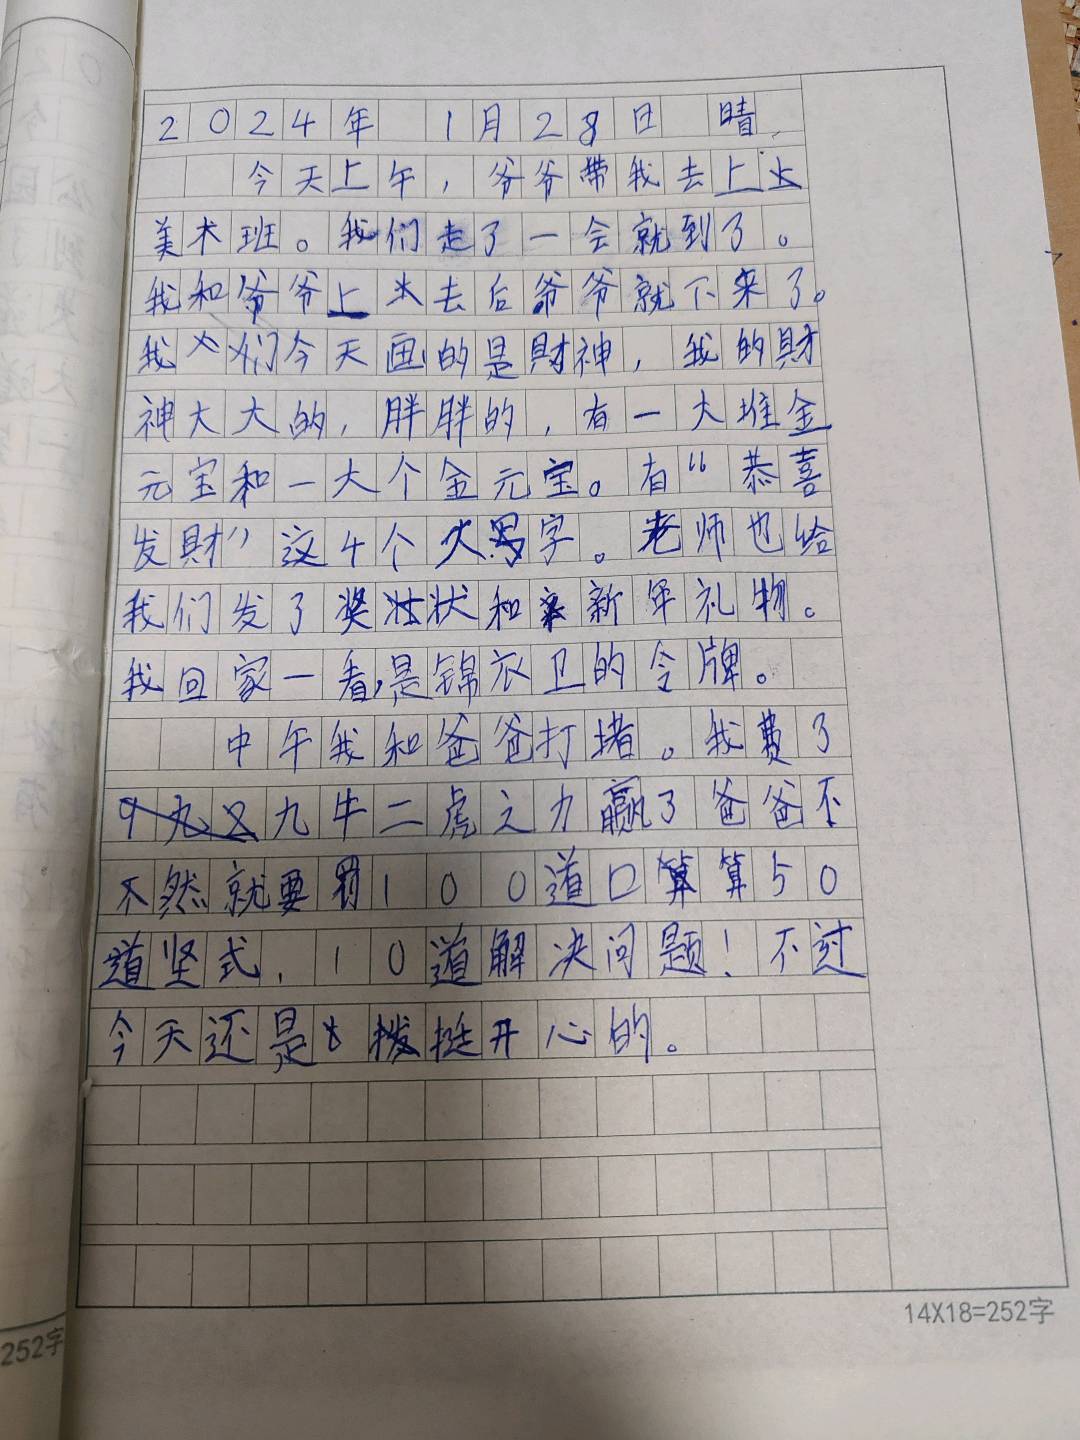 2024年 1月28日 晴
今天上午，爷爷带我去上
美术班。我们走了一会就到了。
我和爷爷上去后爷爷就下来了。
我们今天画的是财神，我的财
神大大的，胖胖的，有一大堆金
元宝和一大个金元宝。有“恭喜
发财”这4个大写字。老师也给
我们发了奖状和新年礼物。
我回家一看，是锦衣卫的令牌。
中午我和爸爸打堵。我费了
九牛二虎之力赢了爸爸不
不然就要罚100道口算算50
道坚式，10道解决问题！不过
今天还是挺开心的。
14X18=252字
252字